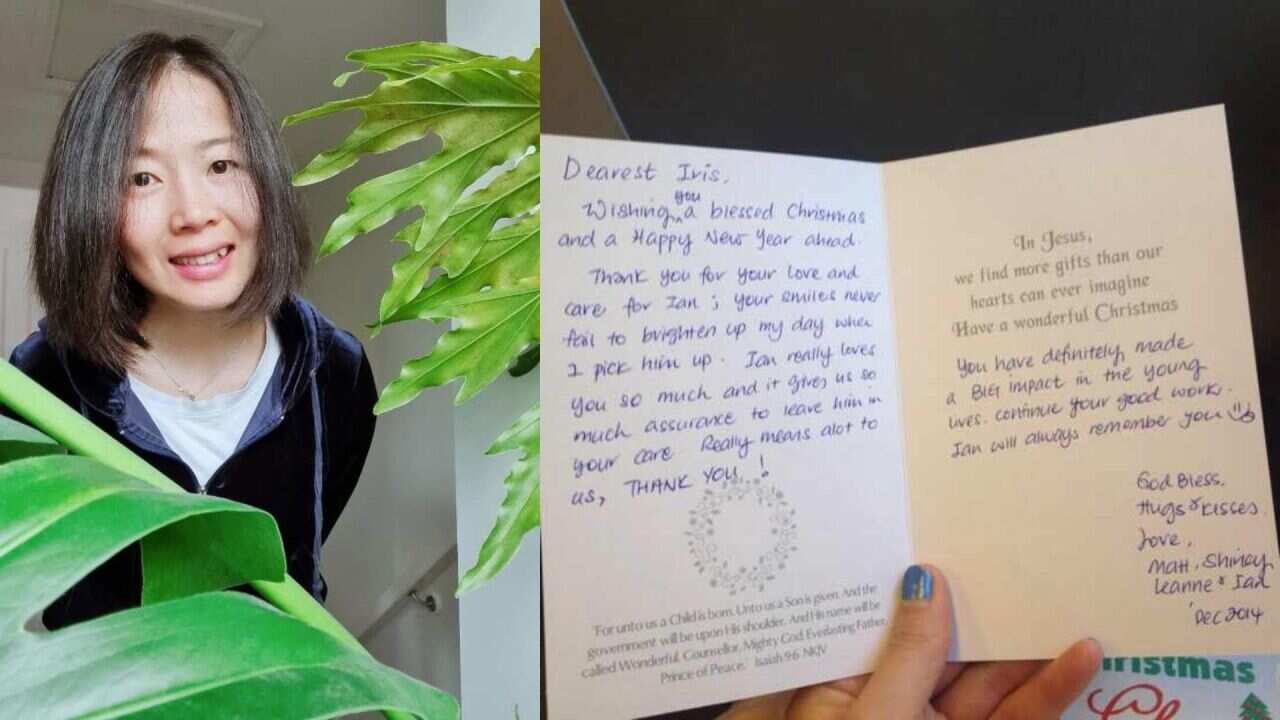 Dearest Iris,
you
Wishing ^ a blessed Christmas
and a Happy New Year ahead.
Thank you for your love and
care for Ian ; your smiles never
fail to brighten up my day when
I pick him up. Ian really loves
you so much and it gives us so
much assurance to leave him in
your care. Really means alot to
us, THANK YOU !
"For unto us a Child is born, Unto us a Son is given. And the
government will be upon His shoulder. And His name will be
called Wonderful, Counsellor, Mighty God, Everlasting Father,
Prince of Peace." Isaiah 9:6 NKJV
In Jesus,
we find more gifts than our
hearts can ever imagine
Have a wonderful Christmas
You have definitely made
a BIG impact in the young
lives. continue your good works.
Ian will always remember you
God Bless.
Hugs & kisses.
Love,
Matt, Shirley
Leanne & Ian
Dec 2014
ristmas